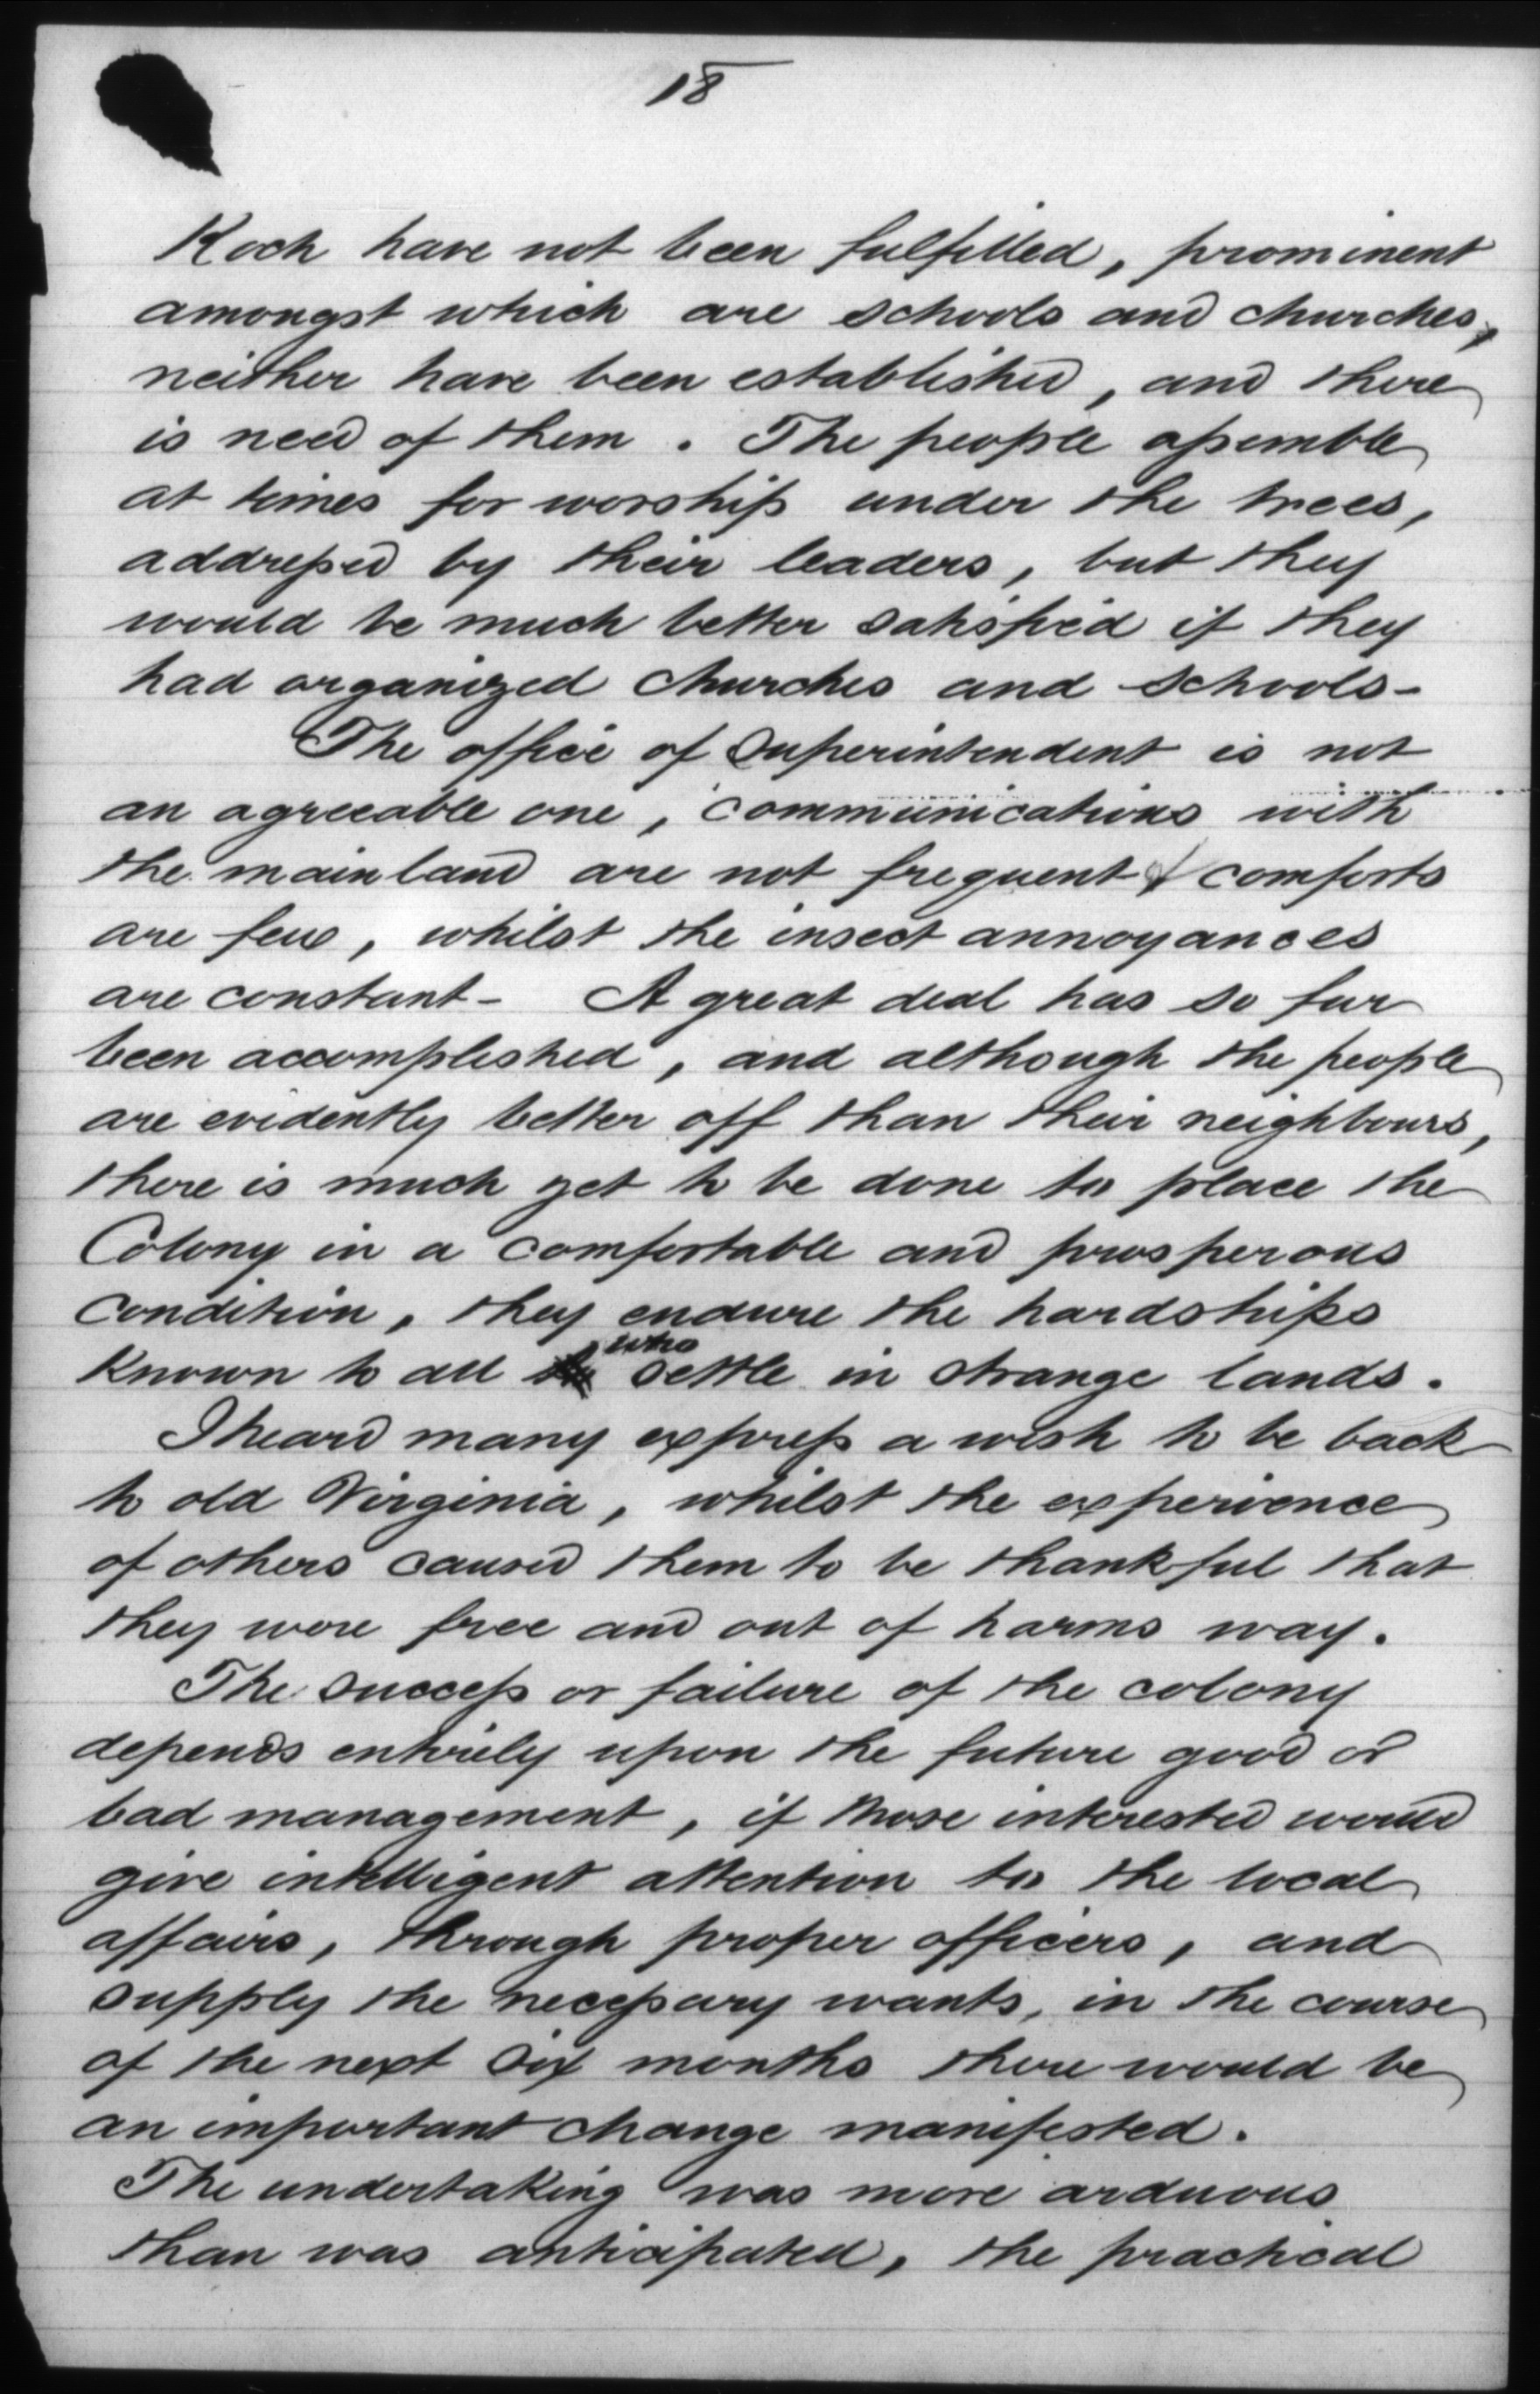 18
Koch have not been fulfilled, prominent
amongst which are schools and churches,
neither have been established, and there
is need of them. The people assemble
at times for worship under the trees,
addressed by their leaders, but they
would be much better satisfied if they
had organized churches and schools-
The office of Superintendent is not
an agreeable one, communications with
the mainland are not frequent & comforts
are few, whilst the insect annoyances
are constant- A great deal has so far
been accomplished, and although the people
are evidently better off than their neighbours,
there is much yet to be done to place the
Colony in a comfortable and prosperous
condition, they endure the hardships
known to all who settle in strange lands.
I heard many express a wish to be back
to old Virginia, whilst the experience
of others caused them to be thankful that
they were free and out of harms way.
The success or failure of the colony
depends entirely upon the future good or
bad management, if those interested would
give intelligent attention to the local
affairs, through proper officers, and
supply the necessary wants, in the course
of the next six months there would be
an important change manifested.
The undertaking was more arduous
than was anticipated, the practical